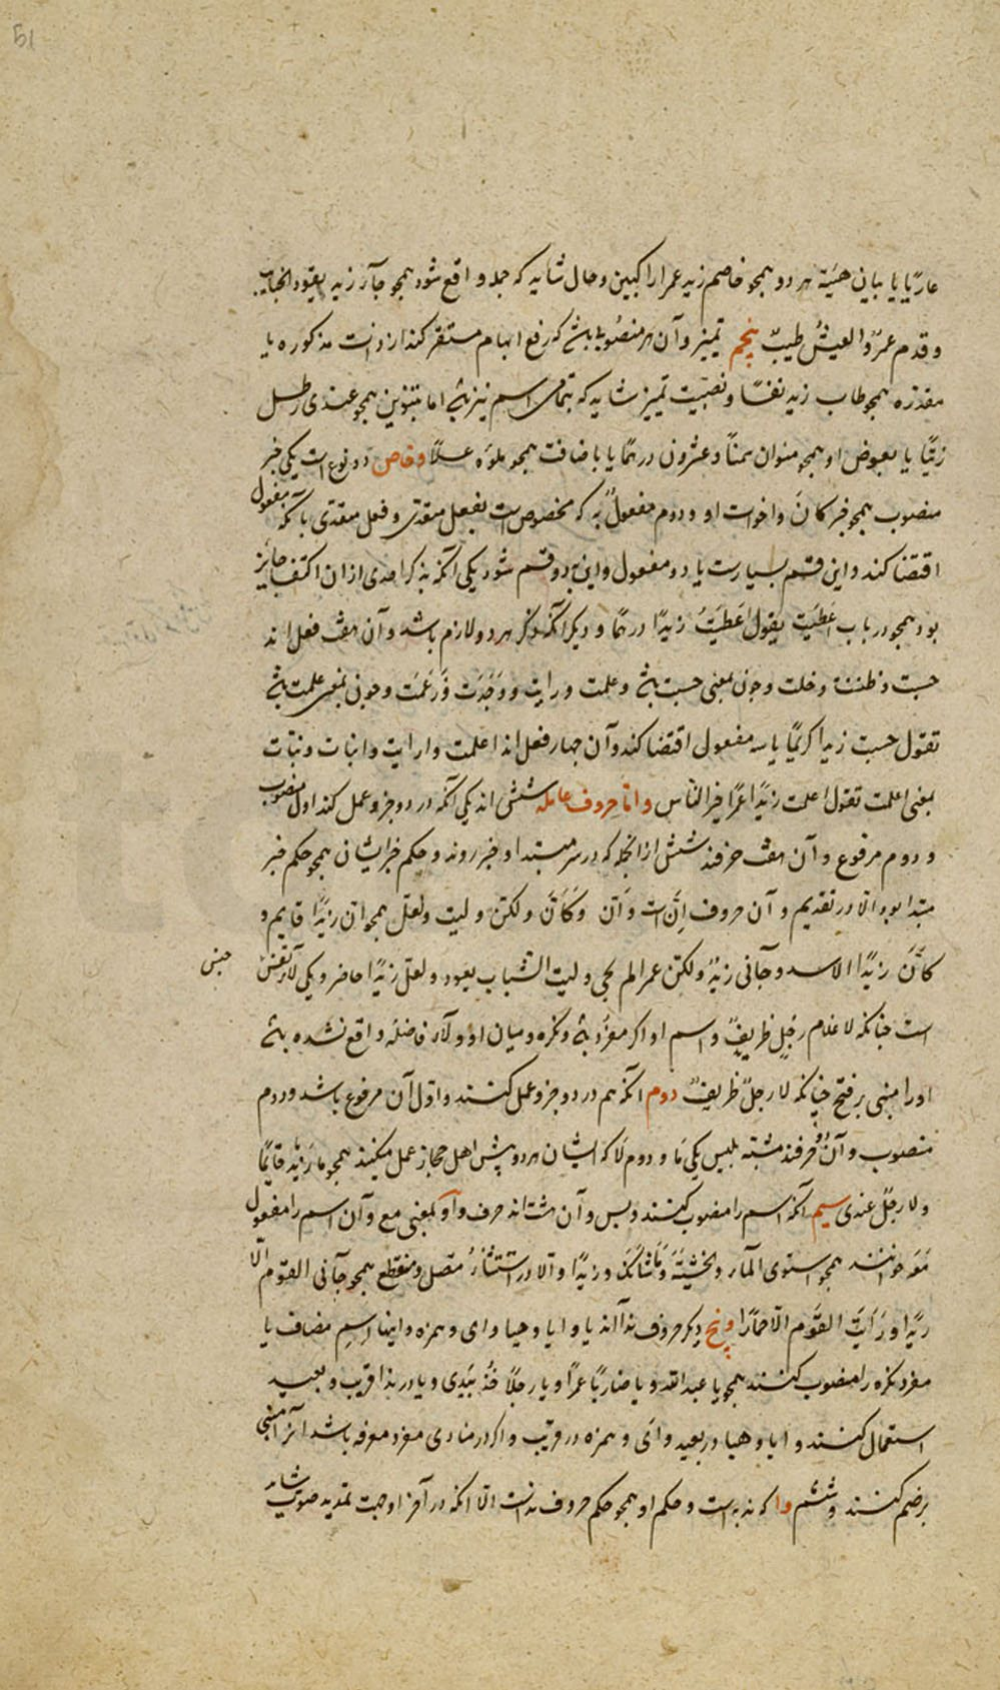 عاریًا یا بیان هیئة هر دو همچو خاصم زید عمرا راکبین و حال شاید که جمله واقع شود همچو جاء زید یقود الجنایب
و قدم عمرٌو العیشُ طیبٌ پنجم تمیز و آن هر منصوبی باشد که رفع ابهام مستقر کند از ذات مذکوره یا
مقدره همچو طاب زید نفسًا و نصبیت تمییز شاید که بتمامی اسم نیز باشد اما بتنوین همچو عندی رطل
زیتًا یا بعوض او همچو منوان سمنًا و عشرون درهمًا یا باضافت همچو ملوه عسلًا و خاص دو نوع است یکی خبر
منصوب همچو خبر کانَ و اخوات او و دوم مفعولٌ به که مخصوص است بفعل متعدی و فعل متعدی یا یک مفعول
اقتضا کند و این قسم بسیارست یا دو مفعول و این بر دو قسم شود یکی آنکه بذکر احدی از ان اکتفا جائز
بود همچو در باب اعطیت یقول اَعطَیتُ زیدًا درهمًا و دیگر آنکه ذکر هر دو لازم باشد و آن هفت فعل اند
حسبت و ظننت و خلت و چون بمعنی حسبت باشد و علمت و رایت و وَجَدَت و زَعَمَت و چون بمعنی علمت باشد
تقول حسبت زیدا کریمًا یا سه مفعول اقتضا کند و آن چهار فعل اند اعلمت و ارایت و انبات و نبات
بمعنی اعلمت تقول اعلمت زیدًا عمرًا خیر الناس و اما حروف عامله شش اند یکی آنکه در دو جزو عمل کند اول منصوب
و دوم مرفوع و آن هفت حرفند شش از انجمله که در سر مبتدا و خبر روند و حکم خبر ایشان همچو حکم خبر
مبتدا بود الا در تقدیم و آن حروف اِنَّ است و اَنَّ و کَاَنَّ و لکنَّ و لیت و لعلّ همچو ان زیدًا قایم و
کاَنَّ زیدًا الاسد و جآنی زیدٌ و لکن عمرا لم یجی و لیت الشباب یعود و لعل زیدًا حاضر و یکی لاء نفی جنس
است چنانکه لا غلام رجلٍ ظریفٌ و اسم او اگر مفرد باشد و نکره و میان او و لاء فاصله واقع نشده باشد
او را مبنی بر فتح چنانکه لا رجلَ ظریفٌ دوم آنکه هم در دو جزو عمل کنند و اول آن مرفوع باشد و دوم
منصوب و آن دو حرفند مشبه بلیس یکی مَا و دوم لَا که ایشان هر دو پیش اهل حجاز عمل میکنند همچو ما زید قایمًا
و لا رجلٌ عندی سیم آنکه اسم را منصوب کنند و بس و آن هشت اند حرف واو بمعنی مع و آن اسم را مفعول
مَعَه خوانند همچو استوی المآء و الخشبَة و مَا شانُکَ و زیدًا و الا در استثناءِ متصل و منقطع همچو جآنی القوم الّا
زیدًا و رَاَیَت القَوم الّا حمارًا و پنج دیگر حروف ندا اند یا و ایا و هیا و ای و همزه و اینها اسم مضاف یا
مفرد نکره را منصوب کنند همچو یا عبد الله و یا ضاربًا عمرًا و یا رجلًا خُذ بیَدی و یا در ندا قریب و بعید
استعمال کنند و ایا و هیا در بعید و اَی و همزه در قریب و اگر در منادی مفرد معرفه باشد آنرا مبنی
بر ضم کنند و ششم وا که ندبه است و حکم او همچو حکم حروف نداست الا آنکه در آخر او جهت تمدید صوت شاید